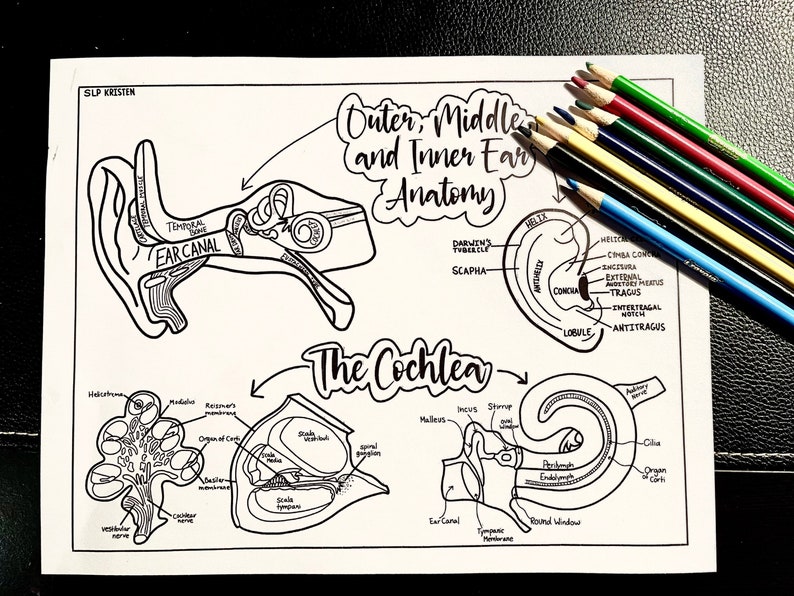 SLP KRISTEN
Outer, Middle,
and Inner Ear
Anatomy
CARTILAGE
TEMPORAL MUSCLE
TEMPORAL
BONE
EAR CANAL
HELIX
DARWIN'S
TUBERCLE
SCAPHA
ANTIHELIX
CONCHA
LOBULE
HELICAL
CYMBA CONCHA
INCISURA
EXTERNAL
AUDITORY MEATUS
TRAGUS
INTERTRAGAL
NOTCH
ANTITRAGUS
The Cochlea
Helicotrema
Modiolus
Reissner's
membrane
Organ of Corti
Basilar
membrane
Cochlear
nerve
Vestibular
nerve
Scala
Vestibuli
Scala
Media
Scala
tympani
spiral
ganglion
Malleus
Incus
Stirrup
oval
Window
Auditory
Nerve
Cilia
Organ
of Corti
Perilymph
Endolymph
Ear Canal
Tympanic
Membrane
Round Window